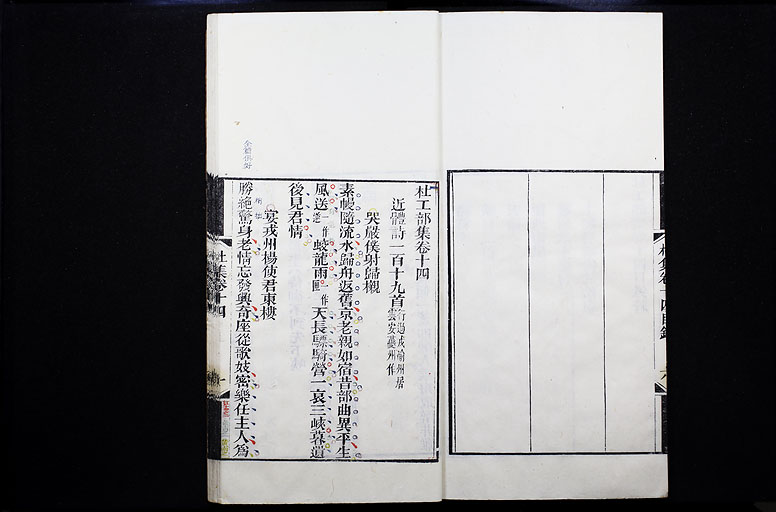 杜工部集卷十四
近體詩一百十九首行過戎渝州居雲安夔州作
哭嚴僕射歸櫬
素幔隨流水歸舟返舊京老親如宿昔部曲異平生
風送一作逆蛟龍雨一作匣天長驃騎營一哀三峽暮遺
後見君情
宴戎州楊使君東樓
勝絕驚身老情忘發興奇座從歌妓密樂任主人為
杜集卷十四